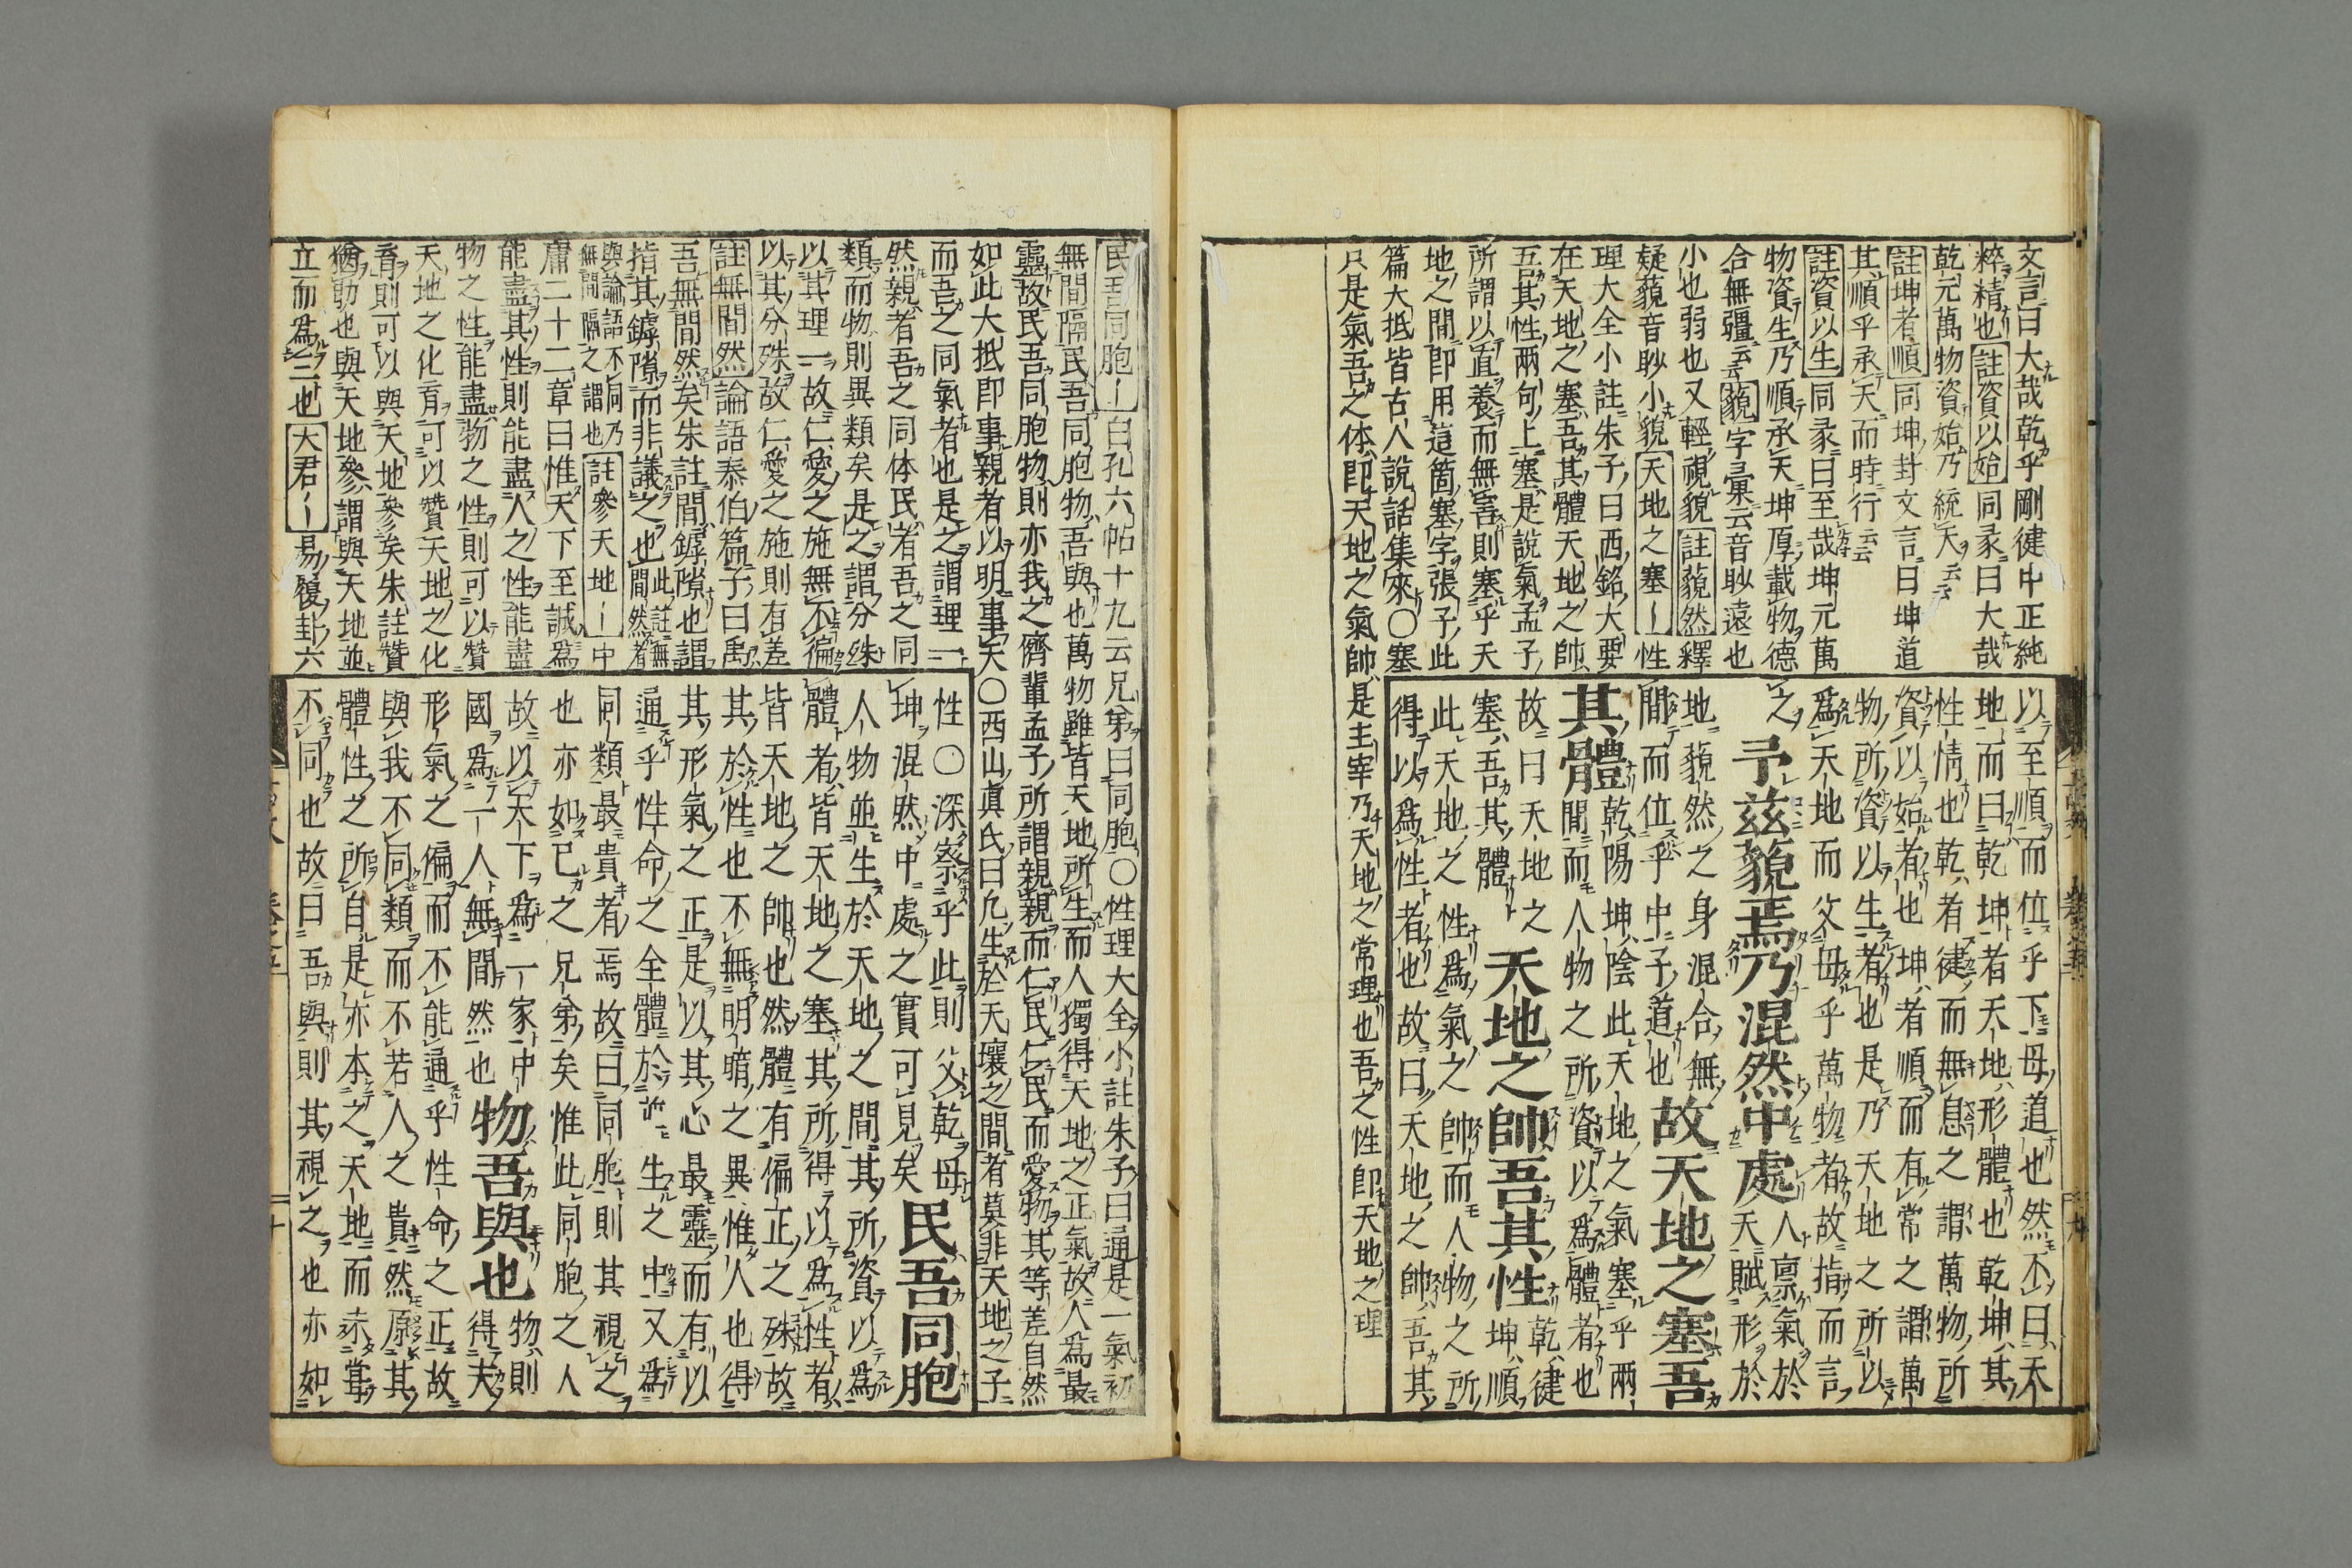 文言曰大哉乾乎剛健中正純
粹精也註資以始同彖曰大哉
乾元萬物資始乃統天云云
註坤者順同坤卦文言曰坤道
其順乎承天而時行云云
註資以生同彖曰至哉坤元萬
物資生乃順承天坤厚載物德
合無疆云云藐字彙云音眇遠也
小也弱也又輕視貌註藐然釋
疑藐音眇小貌天地之塞〡性
理大全小註朱子曰西銘大要
在天地之塞吾其體天地之帥
吾其性兩句上塞是說氣孟子
所謂以直養而無害則塞乎天
地之間即用這箇塞字張子此
篇大抵皆古人說話集來〇塞
只是氣吾之体即天地之氣帥是主宰乃天地之常理也吾之性即天地之理
以至順而位乎下母道也然不曰天
地而曰乾坤者天地形體也乾坤其
性情也乾者健而無息之謂萬物所
資以始者也坤者順而有常之謂萬
物所資以生者也是乃天地之所以
爲天地而父母乎萬物者故指而言
之予茲藐焉乃混然中處人禀氣於天賦形於
地藐然之身混合無
間而位乎中子道也故天地之塞吾
其體乾陽坤陰此天地之氣塞乎兩間而人物之所資以爲體者也
故曰天地之
塞吾其體天地之帥吾其性乾健坤順
此天地之
性爲氣之帥而人物之所
得以爲性者也故曰天地之帥吾其
民吾同胞〡白孔六帖十九云兄弟曰同胞〇性理大全小註朱子曰通是一氣初
無間隔民吾同胞物吾與也萬物雖皆天地所生而人獨得天地之正氣故人爲最
靈故民吾同胞物則亦我之儕輩孟子所謂親親而仁民仁民而愛物其等差自然
如此大抵即事親者以明事天〇西山眞氏曰凡生於天壤之間者莫非天地之子
而吾之同氣者也是之謂理一
然親者吾之同体民者吾之同
類而物則異類矣是之謂分殊
以其理一故仁愛之施無不徧
以其分殊故仁愛之施則有差
註無間然論語泰伯篇子曰禹
吾無間然矣朱註間罅隙也謂
指其罅隙而非議之也此註無間然者
與論語不同乃無間隔之謂也註參天地〡中
庸二十二章曰惟天下至誠爲
能盡其性則能盡人之性能盡
物之性能盡物之性則可以贊
天地之化育可以贊天地之化
育則可以與天地參矣朱註贊
猶助也與天地參謂與天地並
立而爲三也大君〡易復卦六
性〇深察乎此則父乾母
坤混然中處之實可見矣民吾同胞
人物並生於天地之間其所資以爲
體者皆天地之塞其所得以爲性者
皆天地之帥也然體有偏正之殊故
其於性也不無明暗之異惟人也得
其形氣之正是以其心最靈而有以
通乎性命之全體於並生之中又爲
同類最貴者焉故曰同胞則其視之
也亦如己之兄弟矣惟此同胞之人
故以天下爲一家中
國爲一人無間然也物吾與也物則得夫
形氣之偏而不能通乎性命之正故
與我不同類而不若人之貴然原其
體性之所自是亦本之天地而未嘗
不同也故曰吾與則其視之也亦如